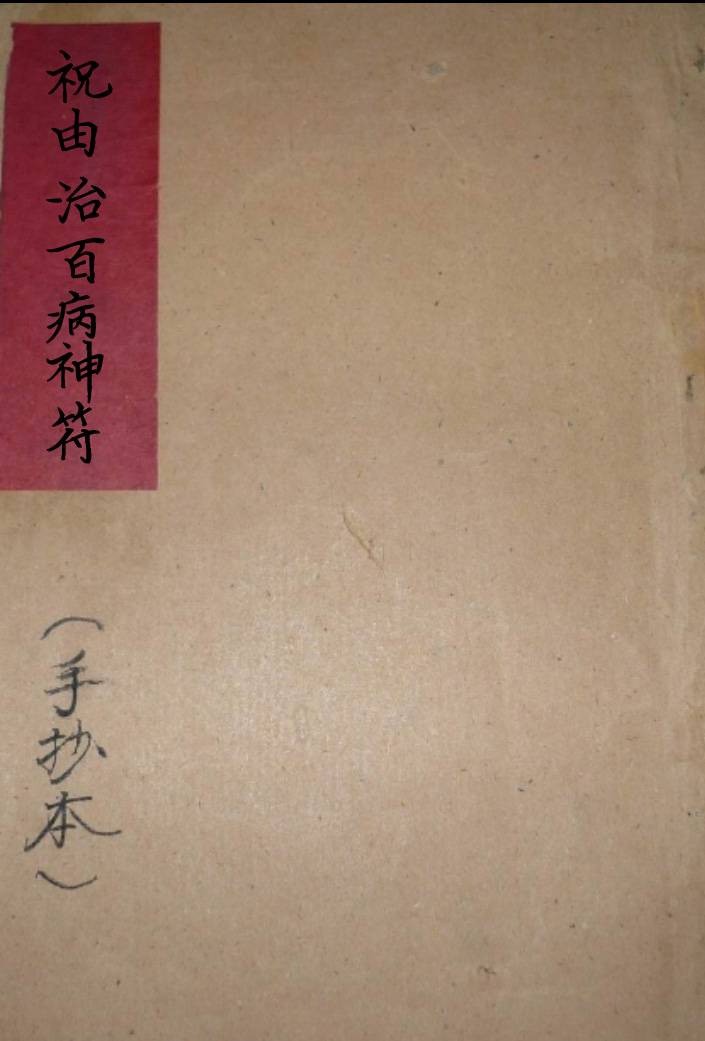 祝由治百病神符
（手抄本）